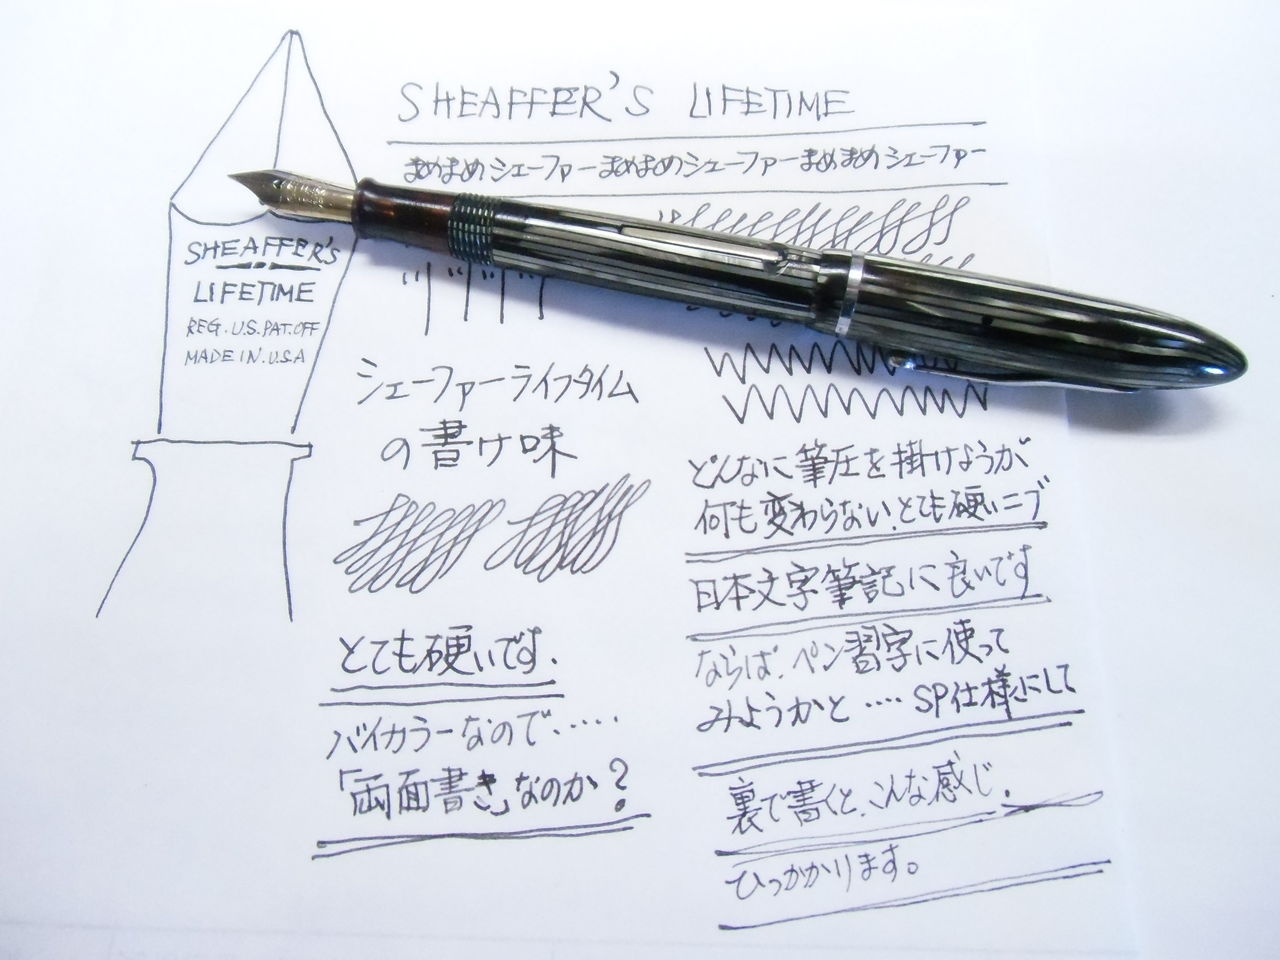 SHEAFFER'S LIFETIME
まめまめシェーファーまめまめシェーファーまめまめシェーファー
SHEAFFER'S
LIFETIME
REG. U.S. PAT. OFF
MADE IN. U.S.A
シェーファーライフタイム
の書け味
とても硬いです.
バイカラーなので・・・・・
「両面書き」なのか?
どんなに筆圧を掛けようが
何も変わらない、とても硬いニブ
日本文字筆記に良いです
ならば、ペン習字に使って
みようかと・・・・SP仕様にして
裏で書くと、こんな感じ.
ひっかかります。